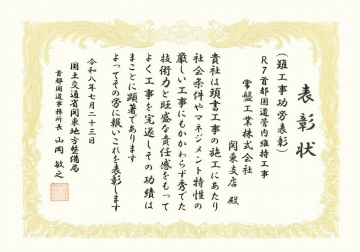 表彰状
(難工事功労表彰)
R7首都国道管内維持工事
常盤工業株式会社
関東支店 殿
貴社は頭書工事の施工にあたり
社会条件やマネジメント特性の
厳しい工事にもかかわらず秀でた
技術力と旺盛な責任感をもって
よく工事を完遂しその功績は
まことに顕著であります
よってその労に報いこれを表彰します
令和八年七月二十三日
国土交通省関東地方整備局
首都国道事務所長 山岡 敏之